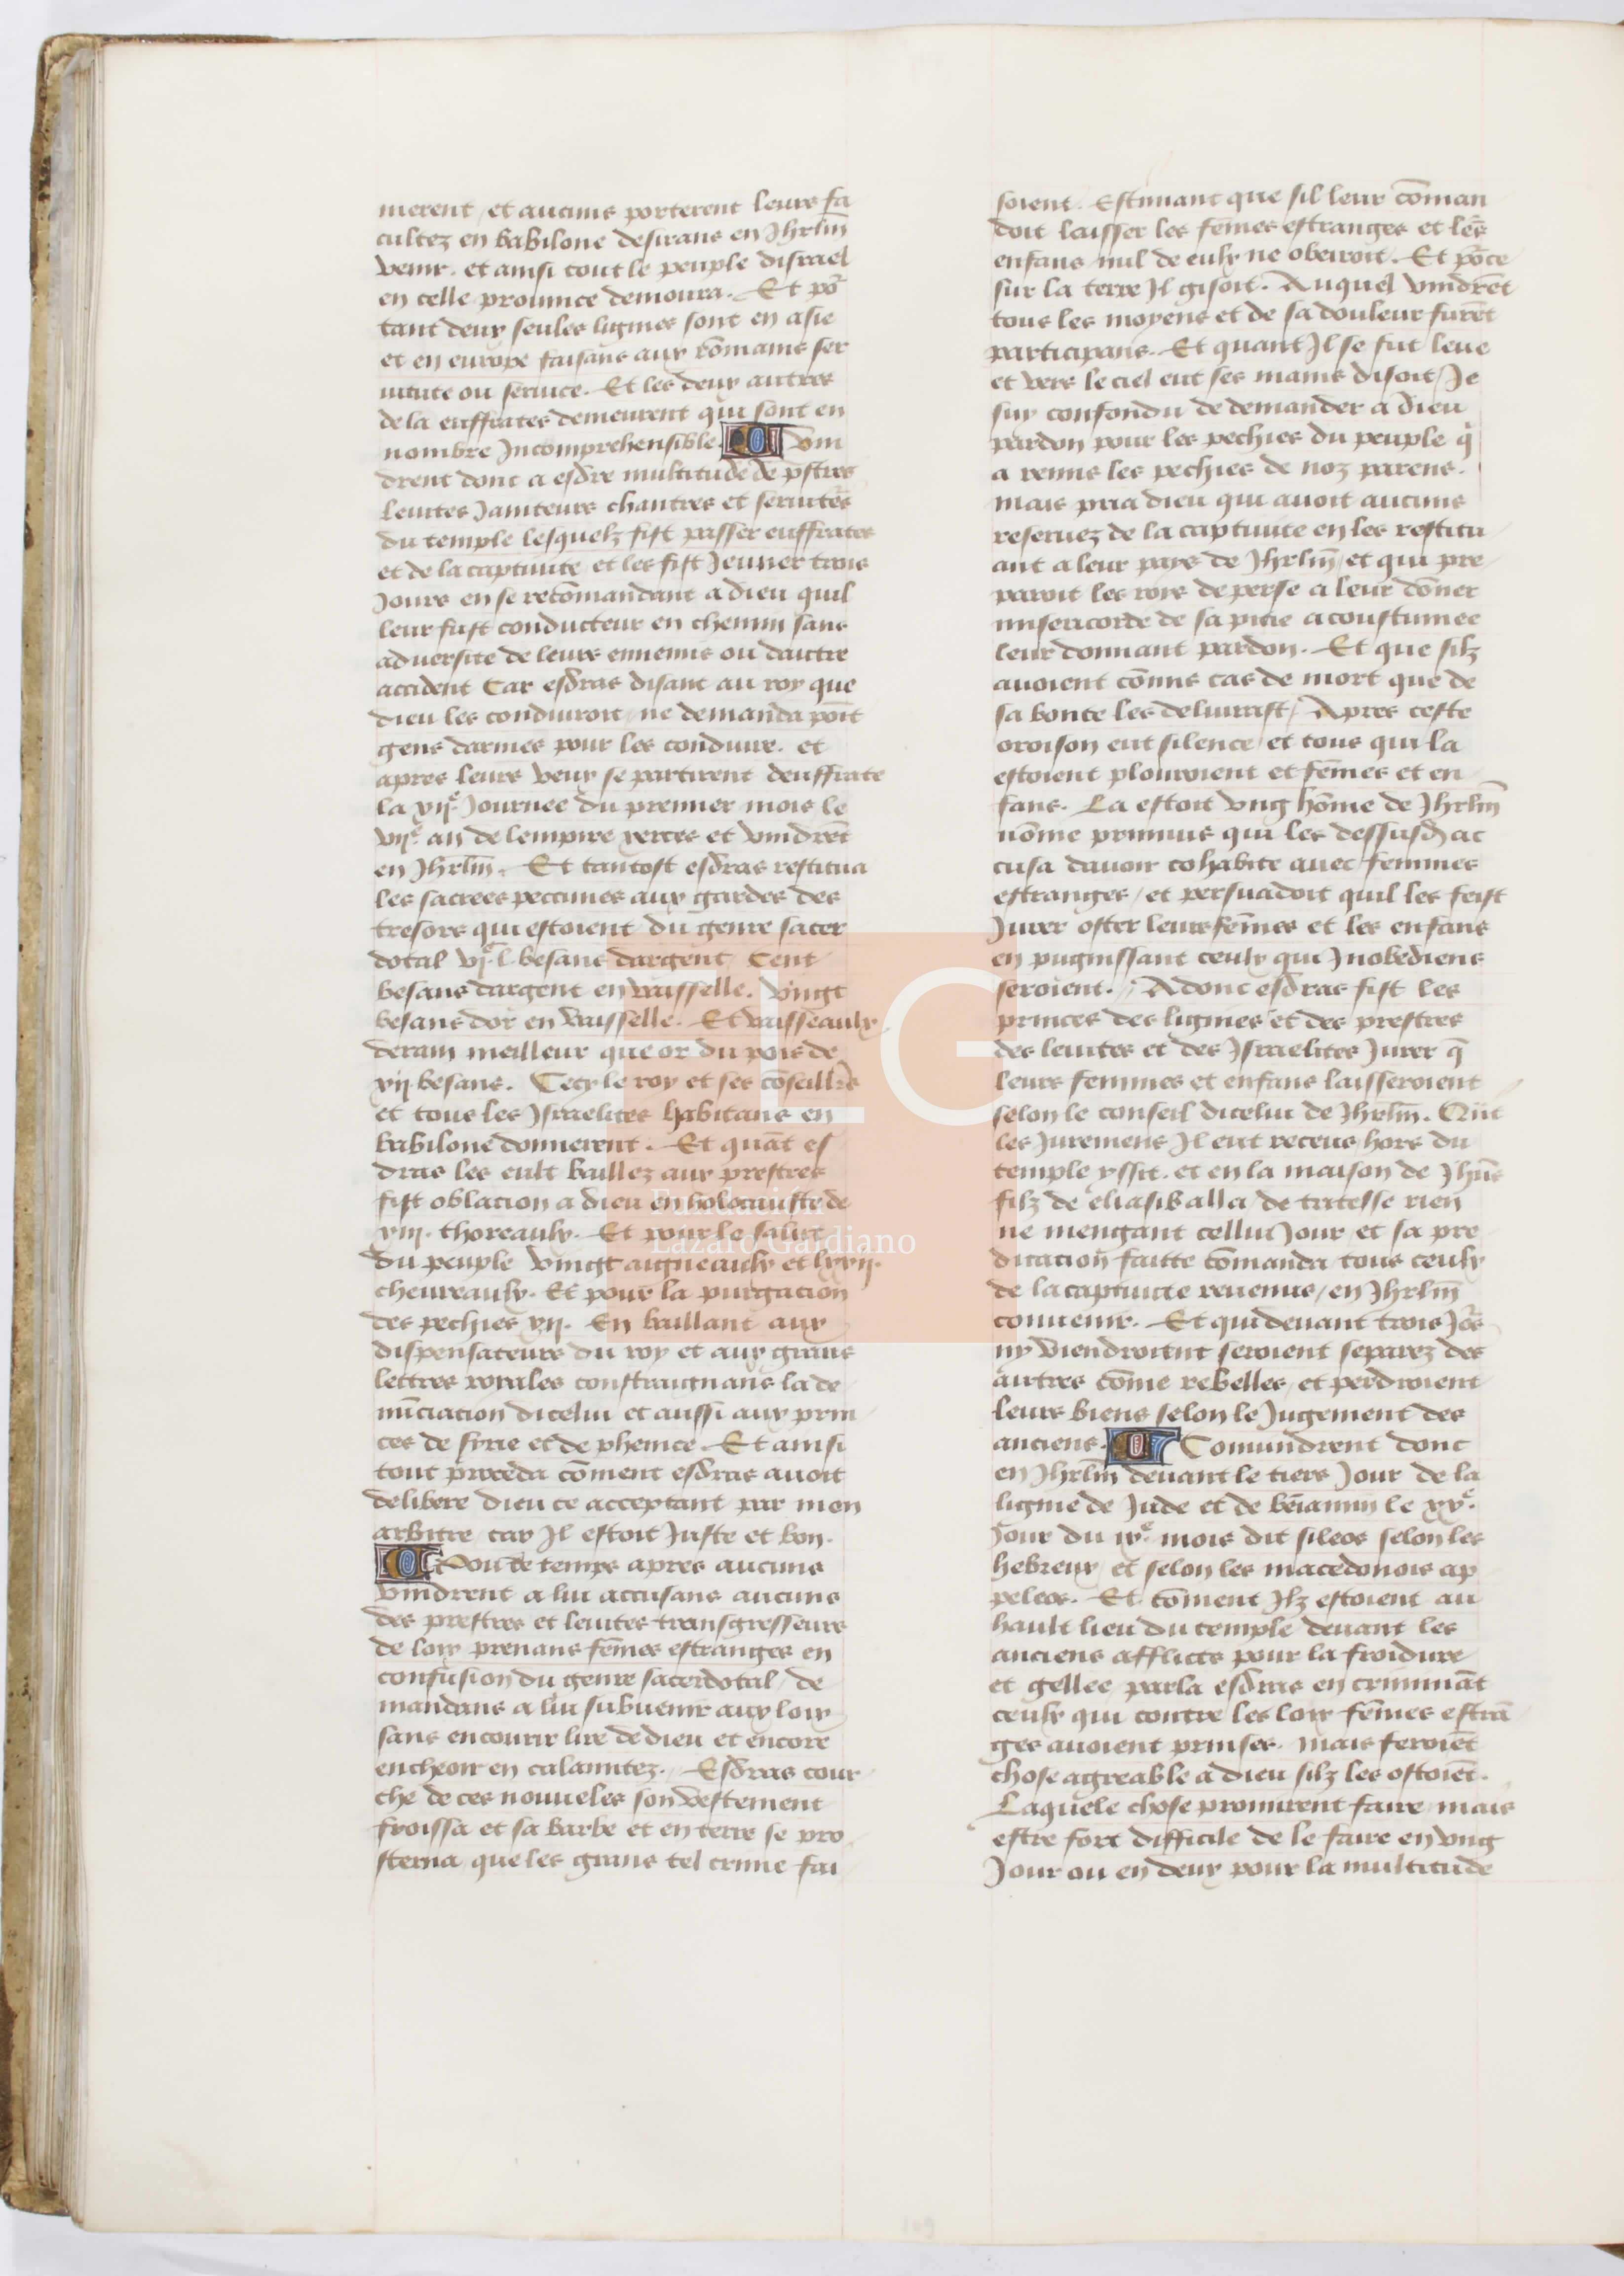 merent / et aucuns porterent leurs fa
cultez en babilone desirans en Jhrlm̄
venir. et ainsi tout le peuple disrael
en celle prouince demoura. Et po᷑
tant deux seules lignies sont en asie
et en europe faisans aux rōmains ser
uitute ou seruice. Et les deux autres
de la euffrates demeurent qui sont en
nombre Incomprehensible. Vin
drent donc a esdre multitude de p̄stres
leuites Janiteurs chantres et seruitēs
du temple lesquelz fist passer euffrates
et de la captiuite et les fist Jeuner trois
Jours en se recōmandant a dieu quil
leur fust conducteur en chemin sans
aduersite de leurs ennemis ou dautre
accident Car esdras disant au roy que
dieu les conduiroit / ne demanda poīt
gens darmes pour les conduire. et
apres leurs veux se partirent deuffrate
la xije Journee du premier mois le
vije an de lempire xerces et vindrēt
en Jhrlm̄. Et tantost esdras restitua
les sacrees peccunes aux gardes des
tresors qui estoient du genre sacer
dotal vje l. besans dargent Cent
besans dargent en vaisselle. vingt
besans dor en vaisselle. Et vaisseaulx
derain meilleur que or du pois de
xij besans. Cecy le roy et ses cōseilles
et tous les Israelites habitans en
babilone donnerent. Et quāt es
dras les eult baillez aux prestres
fist oblacion a dieu en holocauste de
xiij. thoreaulx. Et pour le salut
du peuple vingt aigneaulx et lxxij.
cheureaulx. Et pour la purgacion
des pechies xij. En baillant aux
dispensateurs du roy et aux grans
lettres royales constraignans la de
nūciacion dicelui et aussi aux prin
ces de syrie et de phenice. Et ainsi
tout proceda cōment esdras auoit
delibere dieu ce acceptant par mon
arbitre / car Il estoit Juste et bon.
Pou de temps apres aucuns
vindrent a lui accusans aucuns
des prestres et leuites transgresseurs
de loix prenans fēmes estranges en
confusion du genre sacerdotal / de
mandans a lui subuenir aux loix
sans encourir lire de dieu et encore
encheoir en calamitez. Esdras cour
che de ces nouueles son vestement
froissa et sa barbe et en terre se pro
sterna que les grans tel crime fai
soient. Estimant que sil leur cōman
doit laisser les fēmes estranges et lēs
enfans nul de eulx ne obeiroit. Et pōce
sur la terre Il gisoit. Auquel vindrēt
tous les moyens et de sa douleur furēt
participans. Et quant Il se fut leue
et vers le ciel eut ses mains disoit / Je
suy confondu de demander a dieu
pardon pour les pechies du peuple q̇
a renus les pechies de noz parens.
mais pria dieu qui auoit aucuns
reseruez de la captiuite en les restitu
ant a leur pays de Jhrlm̄ / et qui pre
paroit les roys de perse a leur dōner
misericorde de sa pitie acoustumee
leur donnant pardon. Et que silz
auoient cōmis cas de mort que de
sa bonte les deliurast / Apres ceste
oroison eut silence / et tous qui la
estoient plouroient et fēmes et en
fans. La estoit vng hōme de Jhrlm̄
nōme primus qui les dessusd ac
cusa dauoir cohabite auec femmes
estranges / et persuadoit quil les feist
Jurer oster leurs fēmes et les enfans
en pugnissant ceulx qui Inobediens
seroient. Adonc esdras fist les
princes des lignies et des prestres
des leuites et des Israelites Jurer q̄
leurs femmes et enfans laisseroient
selon le conseil dicelui de Jhrlm̄. Qūt
les Juremens Il eut receus hors du
temple yssit. et en la maison de Jhūs
filz de eliasib alla / de tristesse rien
ne mengant cellui Jour / et sa pre
dicacion faitte cōmanda tous ceulx
de la captiuite reuenus / en Jhrlm̄
conuenir. Et qui deuant trois Jōs
ny viendroient seroient separez des
autres cōme rebelles / et perdroient
leurs biens selon le Jugement des
anciens. Conuindrent donc
en Jhrlm̄ deuant le tiers Jour de la
lignie de Jude et de beniamin le xxe.
Jour du ixe mois dit sileos selon les
hebreux / et selon les macedonois ap
peleos. Et cōment Ilz estoient au
hault lieu du temple deuant les
anciens afflicts pour la froidure
et gellee parla esdras en crimināt
ceulx qui contre les loix fēmes estrā
ges auoient prinses. mais feroiēt
chose agreable a dieu silz les ostoiēt.
Laquele chose promirent faire / mais
estre fort difficile de le faire en vng
Jour ou en deux pour la multitude
FLG
Fundación
Lázaro Galdiano